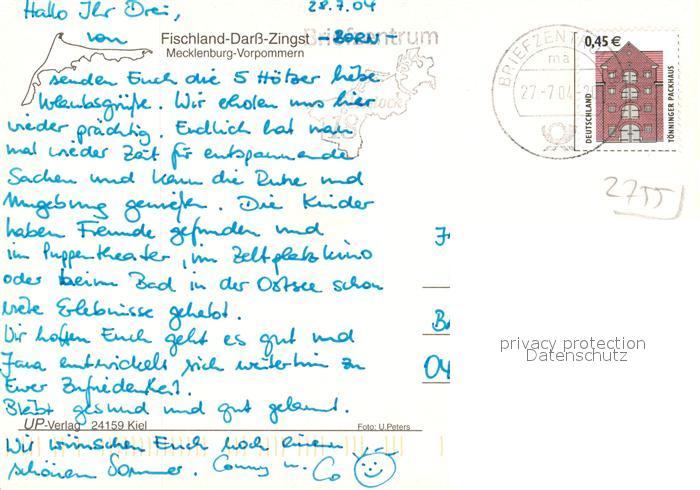 Hallo Ihr Drei, 28.7.04
von Fischland-Darß-Zingst - BORN -
Mecklenburg-Vorpommern
Briefzentrum
senden Euch die 5 Hötzer liebe
Urlaubsgrüße. Wir erholen uns hier
wieder prächtig. Endlich hat man
mal wieder Zeit für entspannende
Sachen und kann die Ruhe und
Umgebung genießen. Die Kinder
haben Freunde gefunden und
im Puppentheater, im Zeltplatzkino
oder beim Bad in der Ostsee schon
viele Erlebnisse gehabt.
Wir hoffen Euch geht es gut und
Jana entwickelt sich weiterhin zu
Eurer Zufriedenheit.
Bleibt gesund und gut gelaunt.
UP-Verlag 24159 Kiel Foto: U.Peters
Wir wünschen Euch noch einen
schönen Sommer. Conny u. Co
BRIEFZENT
ma
27.-7.04
18
0,45 €
DEUTSCHLAND
TÖNNINGER PACKHAUS
2755
04
privacy protection
Datenschutz